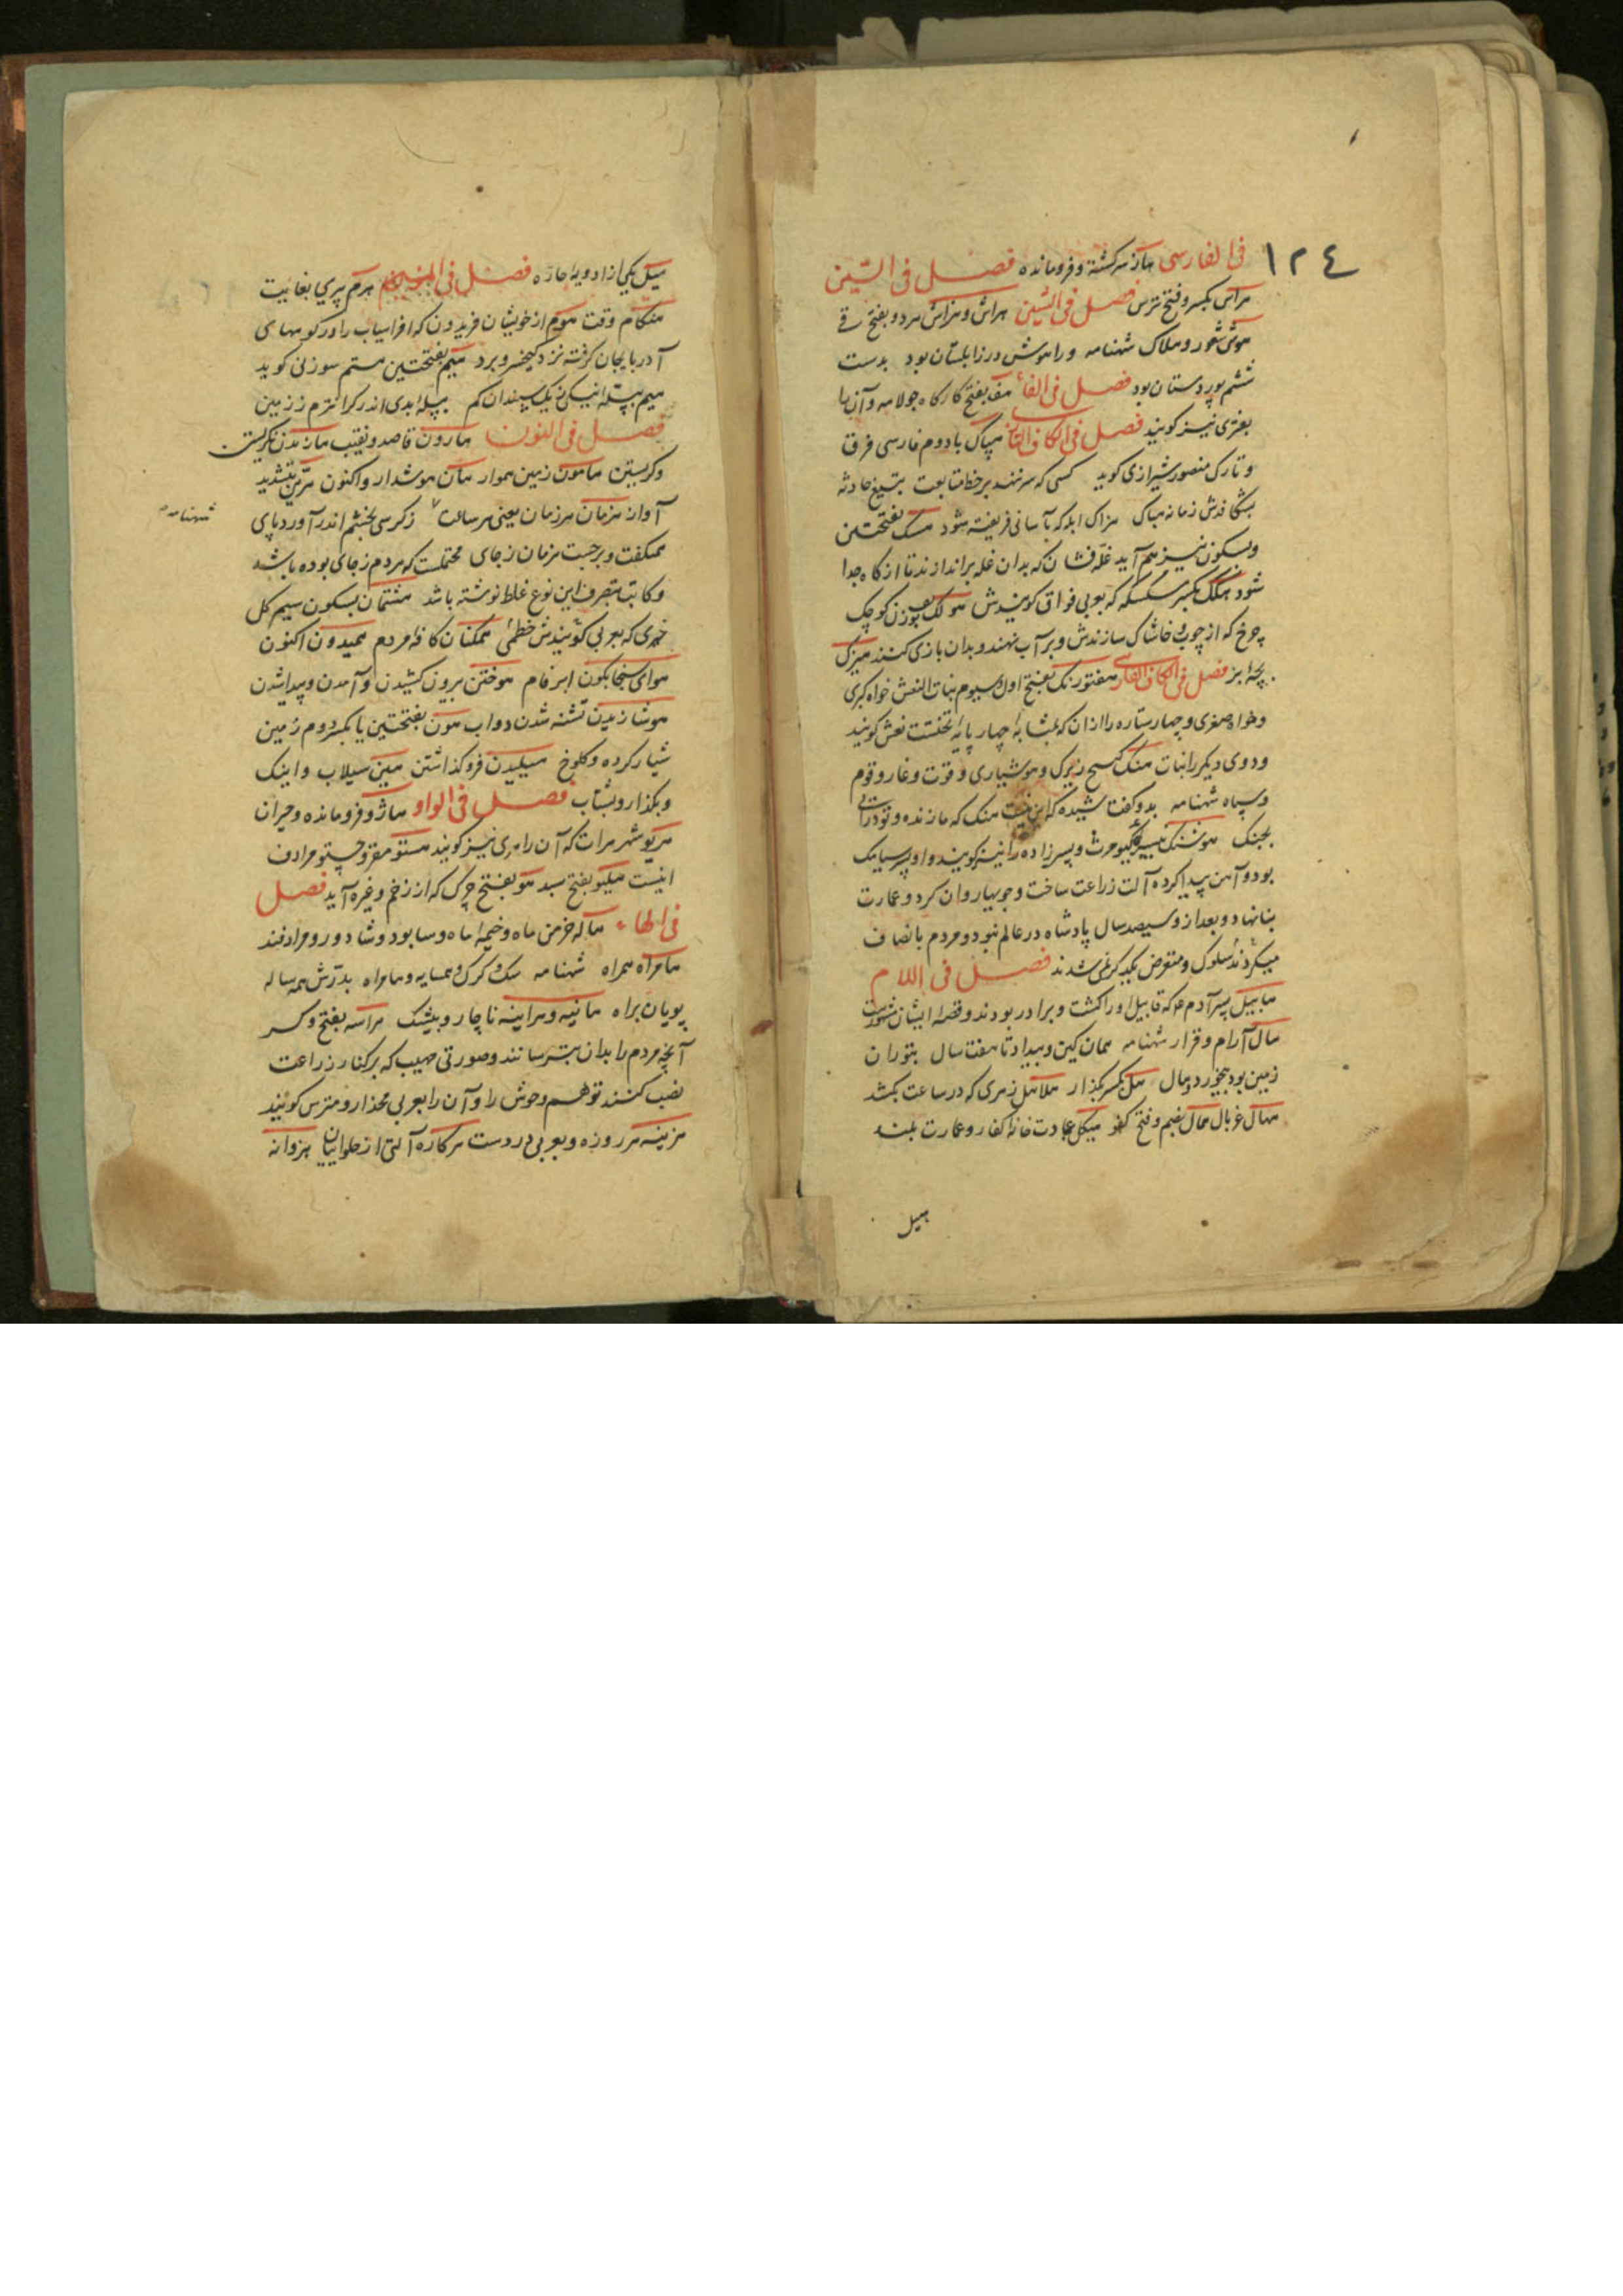 ١٢٤
فی الفارسی هاژ سرکشته و فرومانده فصل فی السّین
هراس بکسر و فتح ترس فصل فی الشّین هراش و هراش هر دو بفتح قے
هوش شعور و هلاک شهنامه ورا هوش در زابلستان بود بدست
ششم پور دستان بود فصل فی الفاء هف بفتح کارکاه جولاهه و آن را
بغتری نیز کویند فصل فی الکاف التازی هپاک با دوم فارسی فرق
و تارک منصور شیرازی کوید کسی که سر ننهد بر خط متابعت بتیغ حادثه
بشکافدش زمانه هباک هزاک ابله که بآسانی فریفته شود هسک بفتحتین
و بسکون نیز هم آید غله فشان که بدان غله براندازند تا از کاه جدا
شود هکک بکسر سکسکه که بعربی فواق کویندش هولک بوزن کوچک
چرخ که از چوب خاشاک سازندش و بر آب نهند و بدان بازی کنند هیزک
بچه بز فصل فی الکاف الفارسی هفتورنک بفتح اول و سیوم بنات النعش خواه کبری
و خواه صغری و چهار ستاره را از آن که بمشابه چهار پایه تختست نعش کویند
و دوی دیکر را بنات هنک زیرک و هوشیاری و قوت و غار و قوم
و سپاه شهنامه بدو کفت شیده که این نیست هنک که ما زنده و تو درآئی
بجنک هوشنک نبیره کیومرث و پسرزاده را نیز کویند و او پسر سیامک
بود و آهن پیدا کرد و آلت زراعت ساخت و جویها روان کرد و عمارت
بنا نهاد و بعد از وی سیصد سال پادشاه در عالم نبود و مردم بانصاف
میکردند سلوک و متعرض یکدیکر نمی شدند فصل فی اللام
هابیل پسر آدم ع م که قابیل او را کشت و برادر بودند و قصه ایشان مشهورست
هال آرام و قرار شهنامه همان کین و بیداد تا هفت سال بتوران
زمین بود بیخورد و هال هل بکسر بکذار هلاهل زهری که در ساعت بکشد
هال غربال همال بضم و فتح کفو هیکل عبادت خانه کفار و عمارت بلند
هیل
هیل یکی از ادویه حاره فصل فی المیم هرم پیری بغایت
هنکام وقت هوم از خویشان فریدون که افراسیاب را در کوههای
آدربایجان کرفته نزد کیخسرو برد هیم بفتحتین هستم سوزنی کوید
هیم بپله نیکی ز یک سپندان کم بپله بدی اندر کرانترم ز زمین
فصل فی النون هارون قاصد و نقیب هازیدن نکریستن
و کریستن هامون زمین هموار هان هوشدار و اکنون هرّین بتشدید
آواز هزمان هر زمان یعنی هر ساعت ز کرسی بخشم اندر آورد پای
شهنامه
همکفت و برجست هزمان ز جای محتملست که هر دم ز جای بوده باشد
و کاتب بتصرف این نوع غلط نوشته باشد هشتمان بسکون سیم کل
خیری که بعربی کویندش خطمی همکنان کافه مردم همیدون اکنون
هوای سنجابکون ابر فام هوختن بیرون کشیدن و آمدن و پیدا شدن
هوشازیدن تشنه شدن دواب هون بفتحتین یا بکسر دوم زمین
شیار کرده و کلوخ هیلیدن فرو کذاشتن هین سیلاب و اینک
و بکذار و بشتاب فصل فی الواو هاژو فرومانده و حیران
هریو شهر هرات که آن را هری نیز کویند هستو مقر و خستو مرادف
اینست هیکو بفتح سبد هو بفتح چرک که از زخم و غیره آید فصل
فی الهاء هاله خرمن ماه و خیمه ماه و سابود و شادورد مرادفند
هامراه همراه شهنامه سک و کرک و همسایه و هامراه بدرش همه ساله
پویان براه هانیه و هراینه ناچار و بیشک هراسه بفتح و کسر
آنچه مردم را بدان بترسانند و صورتی مهیب که بر کنار زراعت
نصب کنند توهم وحوش را و آن را بعربی محذار و مترس کویند
هزینه هر روزه و بعربی هرکاره آلتی از حلوائیان هزوانه